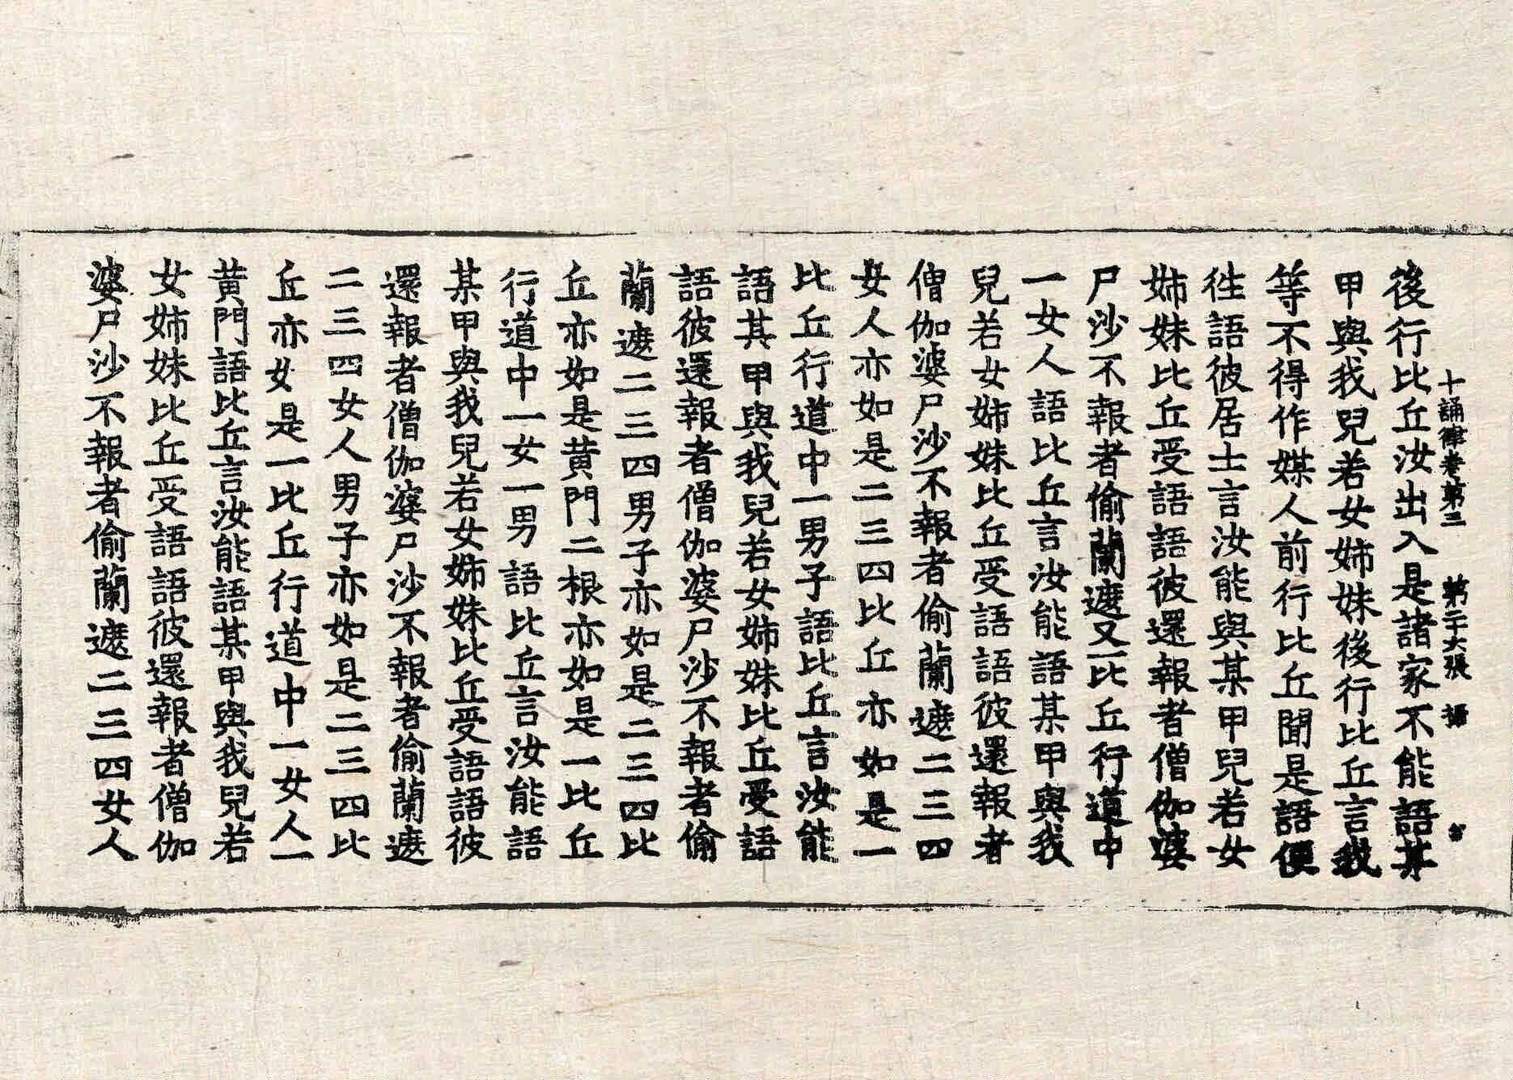 十誦律卷第三 第二十六張 攝
後行比丘汝出入是諸家不能語某
甲與我兒若女姉妹後行比丘言我
等不得作媒人前行比丘聞是語便
往語彼居士言汝能與某甲兒若女
姉妹比丘受語語彼還報者僧伽婆
尸沙不報者偷蘭遮又一比丘行道中
一女人語比丘言汝能語某甲與我
兒若女姉妹比丘受語語彼還報者
僧伽婆尸沙不報者偷蘭遮二三四
女人亦如是二三四比丘亦如是一
比丘行道中一男子語比丘言汝能
語某甲與我兒若女姉妹比丘受語
語彼還報者僧伽婆尸沙不報者偷
蘭遮二三四男子亦如是二三四比
丘亦如是黄門二根亦如是一比丘
行道中一女一男語比丘言汝能語
某甲與我兒若女姉妹比丘受語語彼
還報者僧伽婆尸沙不報者偷蘭遮
二三四女人男子亦如是二三四比
丘亦如是一比丘行道中一女人一
黄門語比丘言汝能語某甲與我兒若
女姉妹比丘受語語彼還報者僧伽
婆尸沙不報者偷蘭遮二三四女人